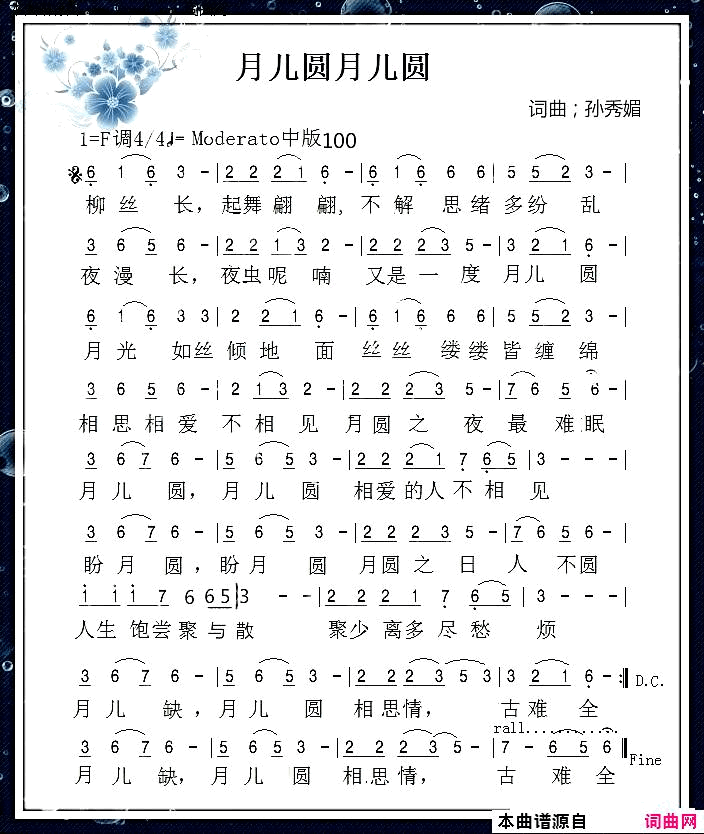 月儿圆月儿圆
词曲；孙秀媚
1=F调4/4♩= Moderato中版100
6 1 6 3 - | 2 2 2 1 6 - | 6 1 6 6 6 | 5 5 2 3 - |
柳丝长，起舞翩翩,不解思绪多纷乱
3 6 5 6 - | 2 2 1 3 2 - | 2 2 2 3 5 - | 3 2 1 6 - |
夜漫长，夜虫呢喃 又是一度月儿圆
6 1 6 3 3 | 2 2 1 6 - | 6 1 6 6 6 | 5 5 2 3 - |
月光如丝倾地面 丝丝缕缕皆缠绵
3 6 5 6 - | 2 1 3 2 - | 2 2 2 3 5 - | 7 6 5 6 - |
相思相爱不相见 月圆之夜最难眠
3 6 7 6 - | 5 6 5 3 - | 2 2 2 1 7 6 5 | 3 - - - |
月儿圆，月儿圆 相爱的人不相见
3 6 7 6 - | 5 6 5 3 - | 2 2 2 3 5 - | 7 6 5 6 - |
盼月圆，盼月圆 月圆之日人不圆
1 1 1 7 6 6 5 | 3 - - | 2 2 2 1 7 6 5 | 3 - - - |
人生饱尝聚与散 聚少离多尽愁烦
3 6 7 6 - | 5 6 5 3 - | 2 2 2 3 5 3 | 3 2 1 6 - :‖ D.C.
月儿缺，月儿圆 相思情，古难全
rall...............
3 6 7 6 - | 5 6 5 3 - | 2 2 2 3 5 - | 7 - 6 5 6 ‖ Fine
月儿缺，月儿圆 相思情，古难全
本曲谱源自 词曲网